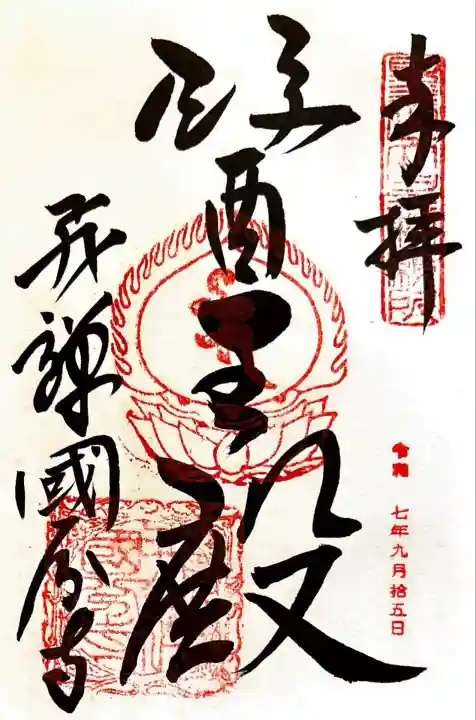 奉拝
令和 七年九月拾五日
醫王殿
飛驒國分寺